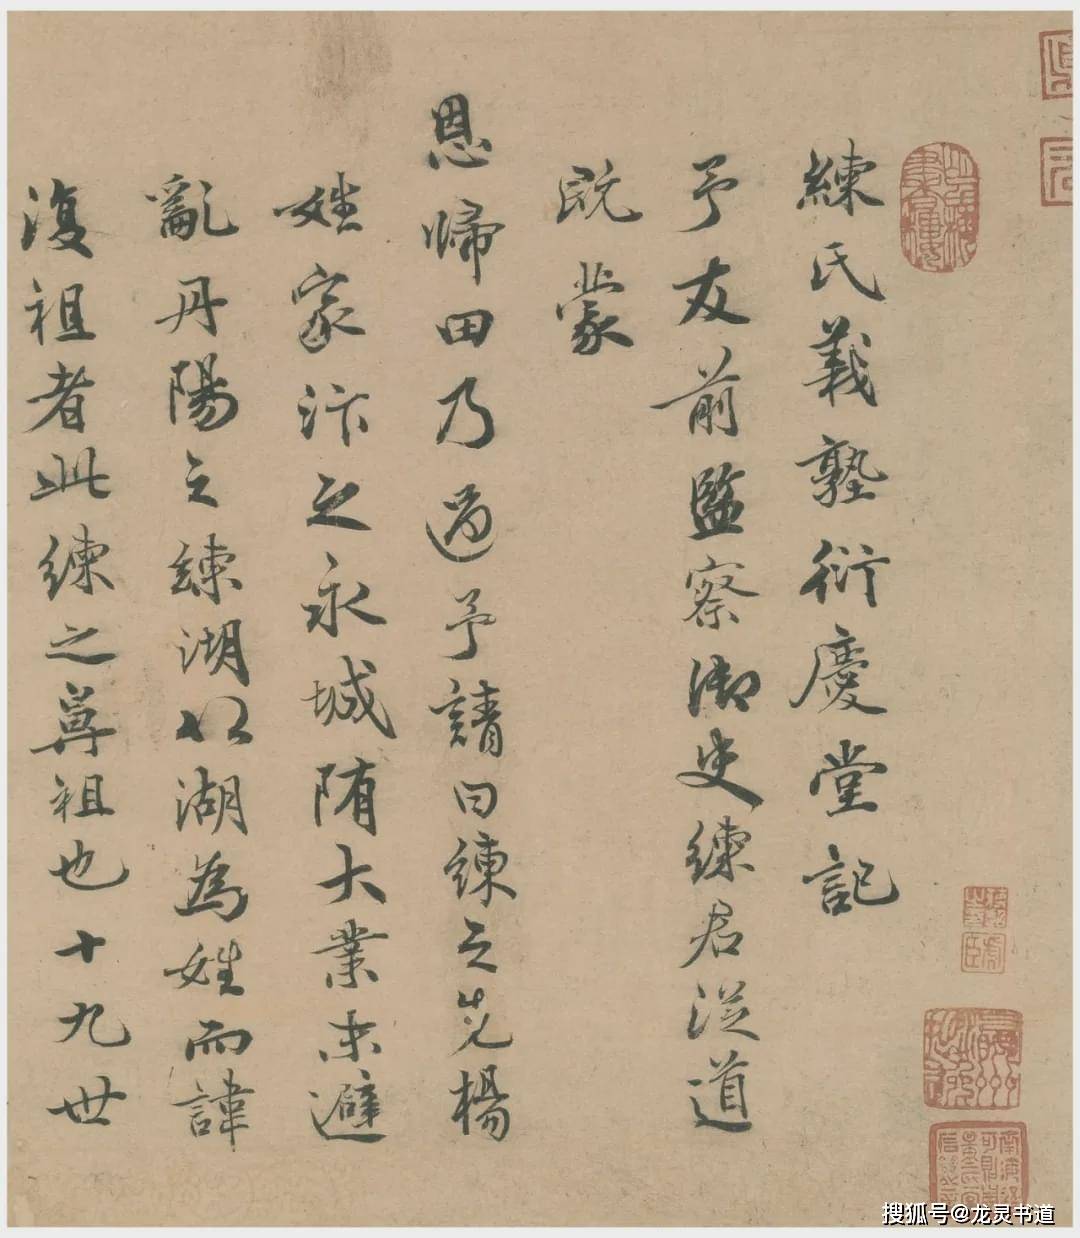 練氏義塾衍慶堂記
予友前監察御史練君從道
既蒙
恩歸田乃過予請曰練之先楊
姓家汴之永城隋大業末避
亂丹陽之練湖以湖為姓而諱
復祖者此練之尊祖也十九世
搜狐号@龙灵书道